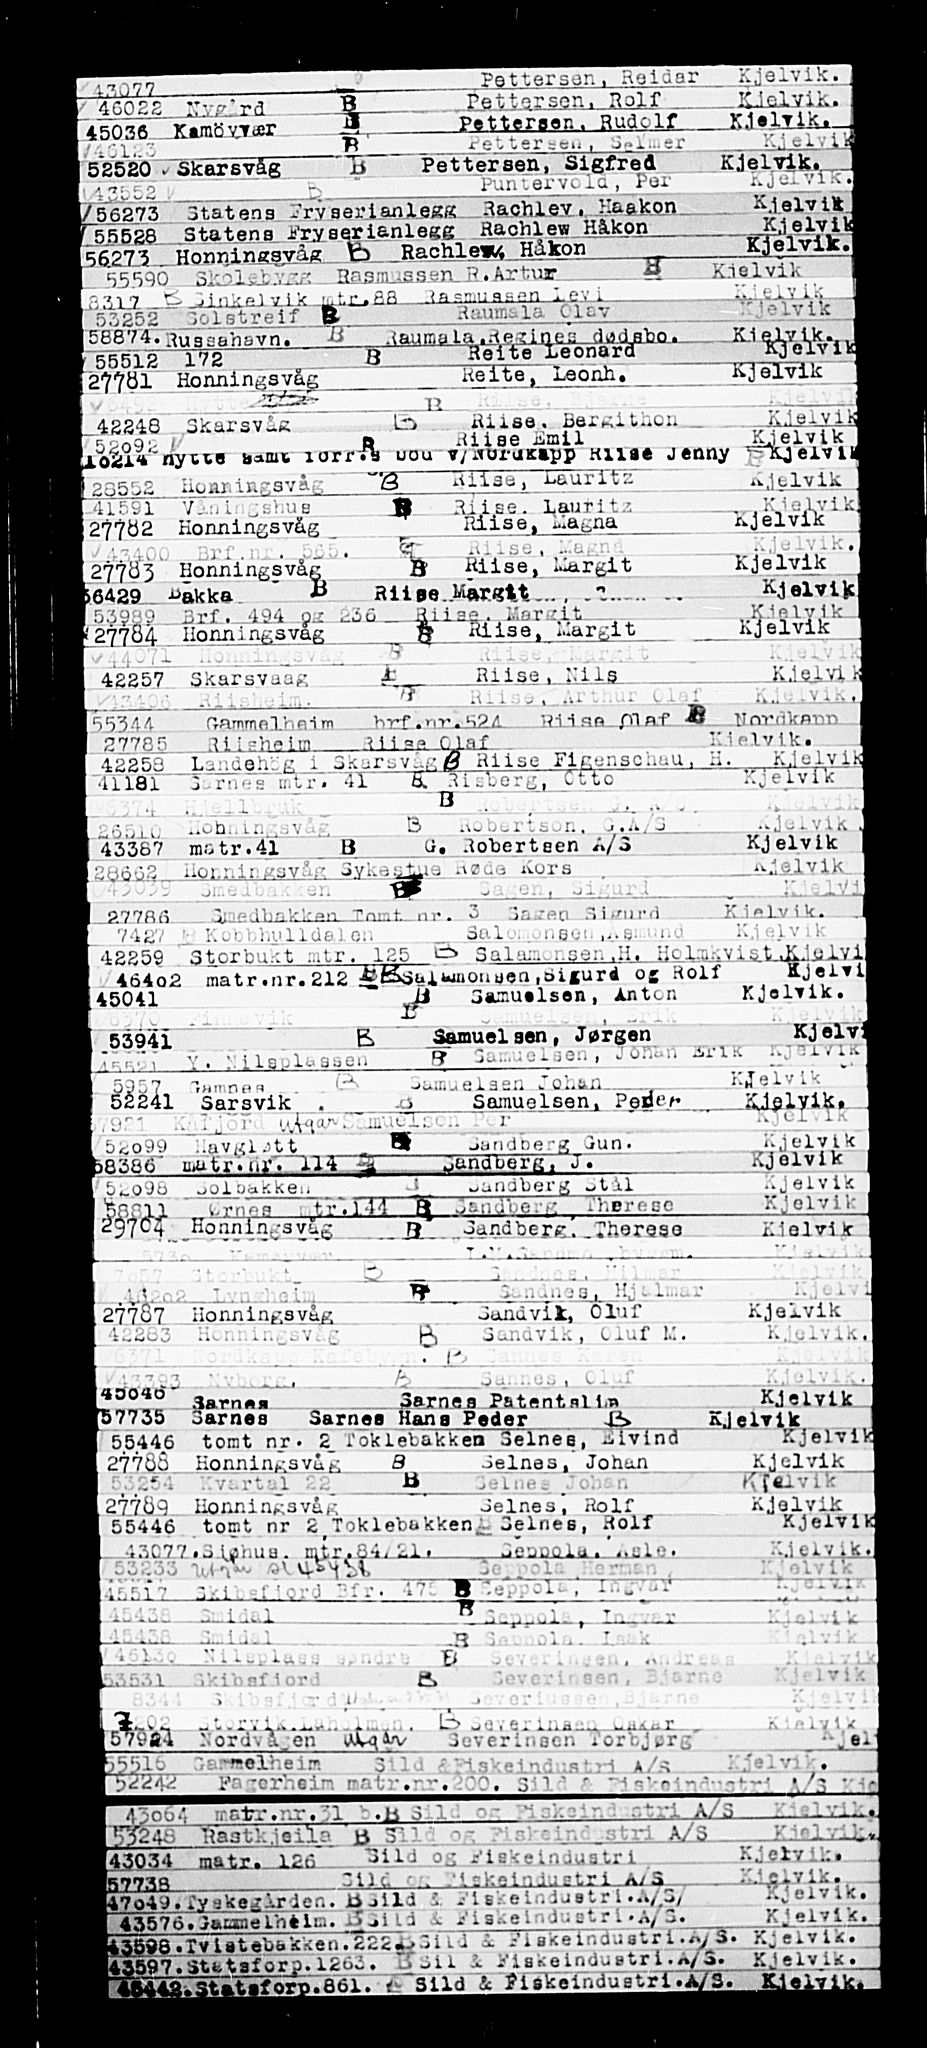 43077 Pettersen, Reidar Kjelvik.
46022 Nygård B Pettersen, Rolf Kjelvik.
45036 Kamöyvær B Pettersen, Rudolf Kjelvik.
46123 B Pettersen, Selmer Kjelvik
52520 Skarsvåg B Pettersen, Sigfred Kjelvik.
43552 B Puntervold, Per Kjelvik.
56273 Statens Fryserianlegg Rachlev, Haakon Kjelvik
55528 Statens Fryserianlegg Rachlew Håkon Kjelvik
56273 Honningsvåg B Rachlew, Håkon Kjelvik.
55590 Skolebygg Rasmussen R.Artur B Kjelvik
8317 B Sinkelvik mtr.88 Rasmussen Levi Kjelvik
53252 Solstreif B Raumala Olav Kjelvik
58874. Russahavn. B Raumala,Regines dødsbo. Kjelvik.
55512 172 B Reite Leonard Kjelvik
27781 Honningsvåg Reite, Leonh. Kjelvik
Hytte B Riise, Bjarne Kjelvik
42248 Skarsvåg B Riise, Bergithon Kjelvik
52092 B Riise Emil Kjelvik
10214 hytte samt forr.s bod v/Nordkapp Riise Jenny B Kjelvik
28552 Honningsvåg B Riise, Lauritz Kjelvik
41591 Våningshus B Riise, Lauritz Kjelvik
27782 Honningsvåg Riise, Magna Kjelvik
43400 Brf.nr. 565. Riise, Magna Kjelvik.
27783 Honningsvåg B Riise, Margit Kjelvik
56429 Bakka B Riise Margit Kjelvik
53989 Brf. 494 og 236 Riise, Margit Kjelvik
27784 Honningsvåg B Riise, Margit Kjelvik
44071 Honningsvåg B Riise, Margit Kjelvik
42257 Skarsvaag B Riise, Nils Kjelvik
43406 Riisheim. B Riise, Arthur Olaf Kjelvik.
55344 Gammelheim brf.nr.524 Riise Olaf B Nordkapp
27785 Riisheim Riise Olaf Kjelvik.
42258 Landehög i Skarsvåg B Riise Figenschau, H. Kjelvik
41181 Sarnes mtr. 41 B Risberg, Otto Kjelvik
6374 Hjellbruk B Robertsen G. A/S Kjelvik
26510 Honningsvåg B Robertson, G.A/S Kjelvik
43387 matr.41 B G. Robertsen A/S Kjelvik
28662 Honningsvåg Sykestue Røde Kors Kjelvik
43039 Smedbakken B Sagen, Sigurd Kjelvi
27786 Smedbakken Tomt nr. 3 Sagen Sigurd Kjelvik.
7427 B Kobbhulldalen Salomonsen,Asmund Kjelvik
42259 Storbukt mtr. 125 B Salamonsen,H. Holmkvist Kjelvi
46402 matr.nr.212 B Salamonsen,Sigurd og Rolf Kjelvi
45041 B Samuelsen, Anton Kjelvik.
6370 Finnevik B Samuelsen, Erik Kjelvik
53941 B Samuelsen, Jørgen Kjelvi
45521 Y. Nilsplassen B Samuelsen, Johan Erik Kjelvik
5957 Gamnes B Samuelsen Johan Kjelvik
52241 Sarsvik . B Samuelsen, Peder Kjelvik.
7921 Kåfjord utgår Samuelsen Per Kjelvik
52099 Havgløtt B Sandberg Gun. Kjelvik
58386 matr.nr. 114 B Sandberg, J. Kjelvik
52098 Solbakken Sandberg Stål Kjelvik
58811 Ørnes mtr.144 B Sandberg Therese Kjelvik
29704 Honningsvåg B Sandberg, Therese Kjelvik
Kjelvik
7057 Storbukt B Sandnes, Hilmar Kjelvik
46202 Lyngheim B Sandnes, Hjalmar Kjelvi
27787 Honningsvåg Sandvik, Oluf Kjelvik
42283 Honningsvåg B Sandvik, Oluf M. Kjelvik.
6371 B Sannes Kjelvik
43393 Nyborg. B Sannes, Oluf Kjelvik.
45046 Sarnes Sarnes Patentslip Kjelvik
57735 Sarnes Sarnes Hans Peder B Kjelvik
55446 tomt nr. 2 Toklebakken Selnes, Eivind Kjelvik
27788 Honningsvåg B Selnes, Johan Kjelvik
53254 Kvartal 22 B Selnes Johan Kjelvik
27789 Honningsvåg Selnes, Rolf Kjelvik
55446 tomt nr 2 Toklebakken B Selnes, Rolf Kjelvik
43077.Sjøhus. mtr.84/21. Seppola, Asle. Kjelvik.
53233 Utgår se 45438 Seppola Herman Kjelvik
45517 Skibsfjord Bfr. 475 B Seppola, Ingvar Kjelvik
45438 Smidal B Seppola, Ingvar Kjelvik
45438 Smidal B Seppola, Isak Kjelvik
46130 Nilsplass søndre B Severinsen, Andreas Kjelvik
53531 Skibsfjord B Severinsen, Bjarne Kjelvik
8344 Skibsfjord Severiussen,Bjarne Kjelvi
7202 Storvik.Laholmen. B Severinsen Oskar Kjelvik
57924 Nordvågen utgår Severinsen Torbjørg Kjel
55516 Gammelheim Sild &Fiskeindustri A/S Kjelvik.
52242 Fagerheim matr.nr.200. Sild & Fiskeindustri A/S Kje
43064 matr.nr.31 b.B Sild og Fiskeindustri A/S Kjelvik.
53248 Rastkjeila B Sild og Fiskeindustri A/S Kjelvik.
43034 matr. 126 Sild og Fiskeindustri Kjelvik.
57738 Sild og Fiskeindustri A/S Kjelvik.
47049.Tyskegården. B Sild & Fiskeindustri.A/S/ Kjelvik.
43576.Gammelheim. B Sild & Fiskeindustri.A/S. Kjelvik.
43598.Tvistebakken.222. B Sild & Fiskeindustri.A/S. Kjelvik.
43597.Statsforp.1263. B Sil & Fiskeindustri.A/S. Kjelvik.
45442.Statsforp.861. Sild & Fiskeindustri.A/S. Kjelvik.